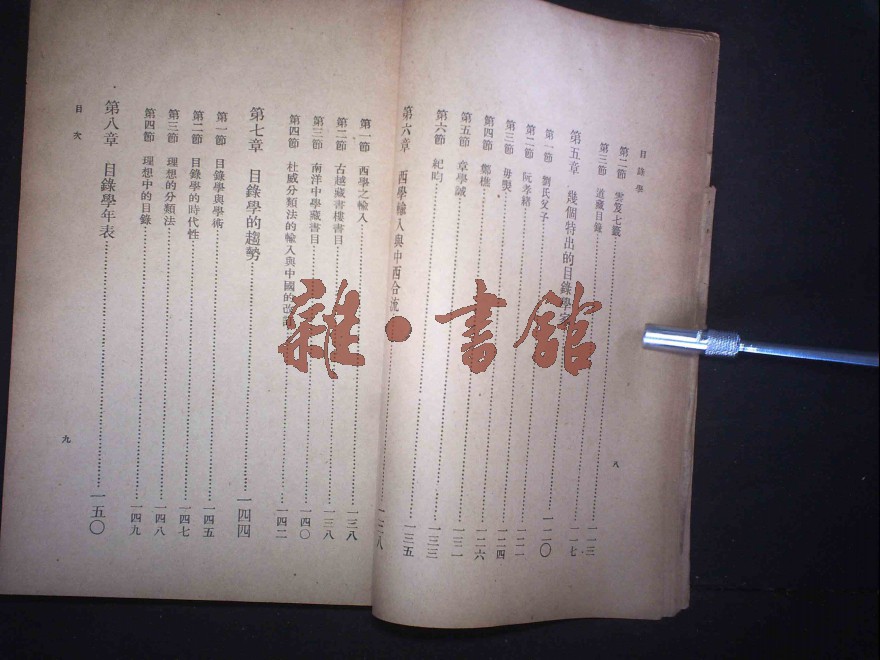 目錄學
第二節 雲笈七籤……一一三
第三節 道藏目錄……一一七
第五章 幾個特出的目錄學家……一二〇
第一節 劉氏父子……一二一
第二節 阮孝緒……一二四
第三節 毋煚……一二六
第四節 鄭樵……一三一
第五節 章學誠……一三三
第六節 紀昀……一三五
第六章 西學輸入與中西合流……一三八
八
第一節 西學之輸入……一三八
第二節 古越藏書樓書目……一三八
第三節 南洋中學藏書目……一四〇
第四節 杜威分類法的輸入與中國的改……一四二
第七章 目錄學的趨勢……一四四
第一節 目錄學與學術……一四五
第二節 目錄學的時代性……一四七
第三節 理想的分類法……一四八
第四節 理想中的目錄……一四九
第八章 目錄學年表……一五〇
目次
九
雜·書館